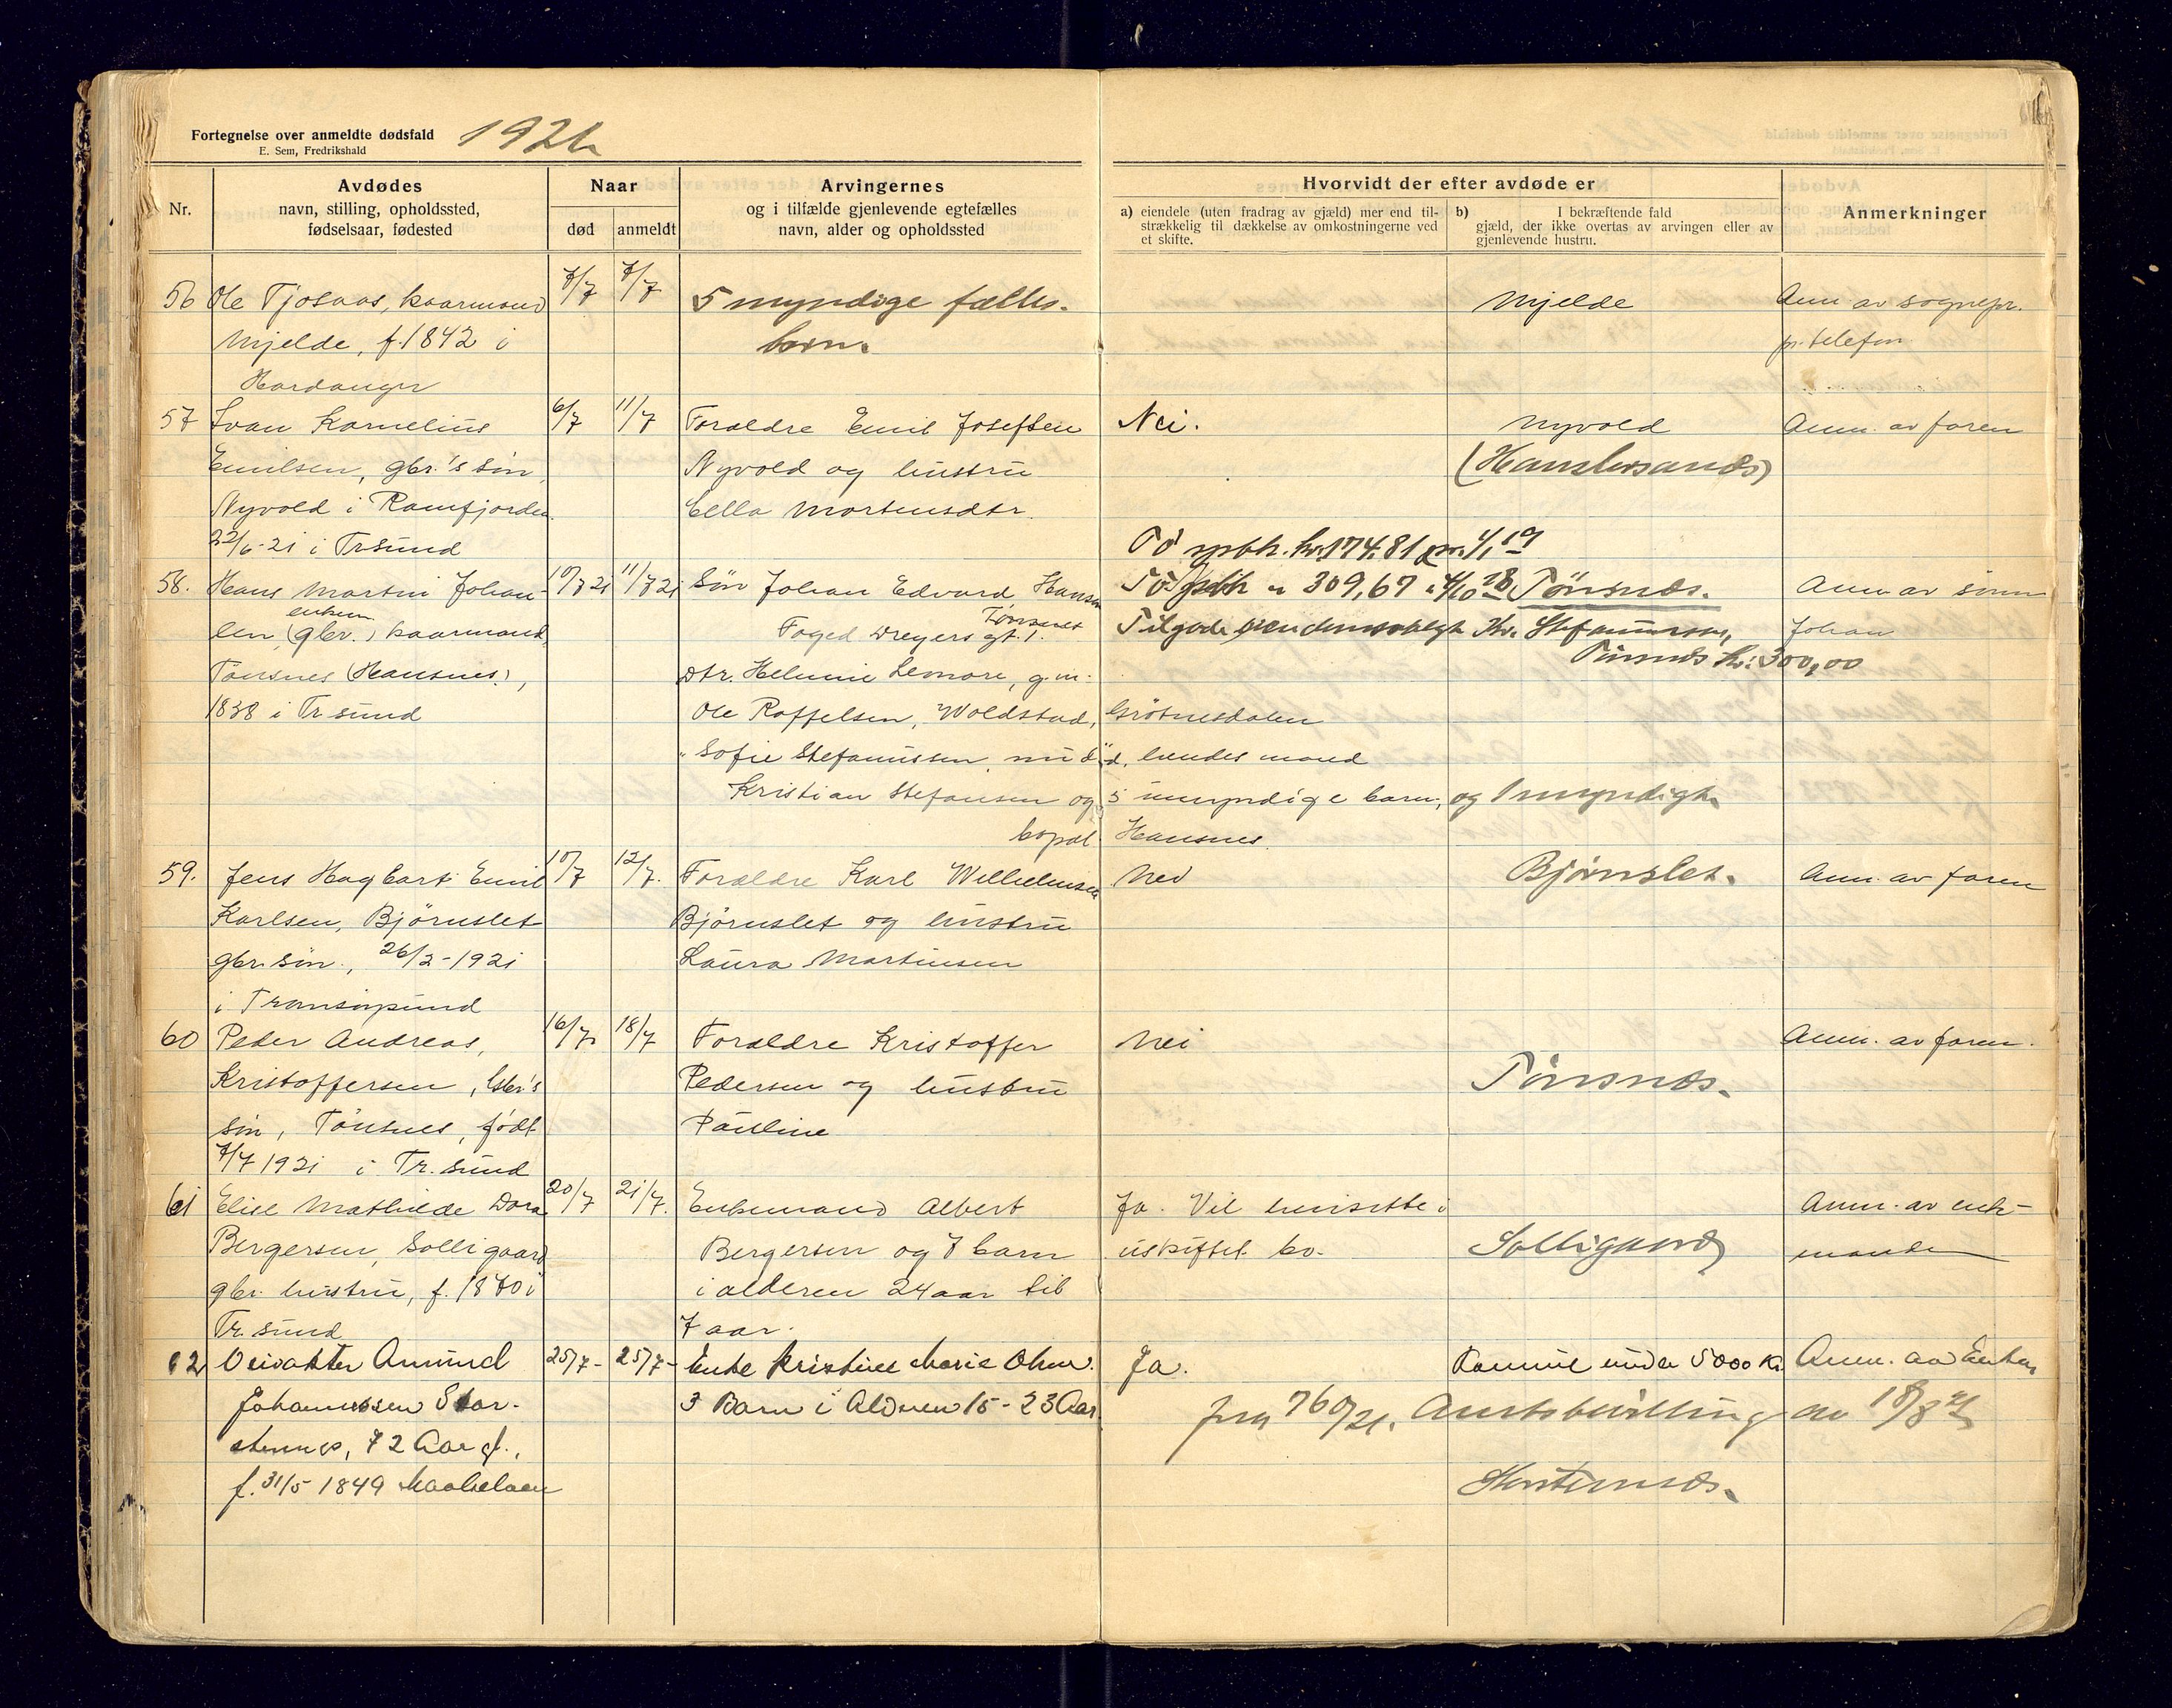 Fortegnelse over anmeldte dødsfald 1921.
E. Sem, Fredrikshald
Nr.
Avdødes
navn, stilling, opholdssted,
fødselsaar, fødested
Naar
død
anmeldt
Arvingernes
og i tilfælde gjenlevende egtefælles
navn, alder og opholdssted
Hvorvidt der efter avdøde er
a) eiendele (uten fradrag av gjæld) mer end til-
strækkelig til dækkelse av omkostningerne ved
et skifte.
b) I bekræftende fald
gjæld, der ikke overtas av arvingen eller av
gjenlevende hustru.
Anmerkninger
56 Ole Tjosaas, kaarmand
Mjelde, f. 1842 i
Hardanger
7/7 7/7
5 myndige fælles-
born.
Mjelde
Anm av sognepr.
pr. telefon
57 Ivan Kornelius
Emilsen, gbr.'s søn,
Nyvold i Ramfjorden
22/6-21 i Tr.sund
6/7 11/7
Foræld­re Emil Josefsen
Nyvold og hustru
Ella Mortensdtr.
Nei.
Nyvold
Anm. av faren
58. Hans Martin Johan-
sen, (gbr.) kaarmand
enkem
Tønsnes (Hansnes),
1838 i Tr sund
10/7 21 11/7 21
Søn Johan Edvard Hansen
Tønsnes
Foged Dreyers gt. 1.
Dtr. Helmine Lenore, g.m.
Ole Roffelsen, Woldstad, Grøtnesdalen
" Sofie Stefanussen, nu død, hendes mand
Kristian Stefansen og 5 umyndige barn, og 1 myndigt.
bopæl Hansnes.
kr. 174,81 pr. 4/1 19
309,67 4/10 18 Tönsnæs.
Tilgode Kr. Stefanussen,
Tönsnæs kr: 300,00
Anm. av sønn
Johan
59. Jens Hagbart Emil
Karlsen, Bjørnslet
gbr. søn., 26/2-1921
i Tromsøysund
10/7 12/7.
Forældre Karl Wilhelmsen
Bjørnslet og hustru
Laura Martinsen
Nei
Bjørnslet.
Anm. av faren
60 Peder Andreas,
Kristoffersen, Gbr's
søn, Tønsnes, født
7/7 1921 i Tr. sund
16/7. 18/7
Forældre Kristoffer
Pedersen og hustru
Pauline
Nei
Tönsnæs.
Anm. av faren.
61 Elise Mathilde Dora
Bergersen, Solligaard
gbr. hustru, f. 1870 i
Tr. sund
20/7 21/7.
Enkemand Albert
Bergersen og 7 barn
i alderen 24 aar til
7 aar.
Ja. Vil hensitte i
uskiftet bo.
Solligaard
Anm. av enke-
manden
62 Amund
Johannessen Stor-
stennes, 72 Aar gl.,
f. 31/5 1849 Maalselven
25/7- 25/7-
Enke Kristine Marie Olsen.
3 Barn i Alderen 15-23 Aar
Ja.
under 5000 Kr
Anm. av Enken
760/21. Amtsbevilling av 18/8 21
Storstennæs.